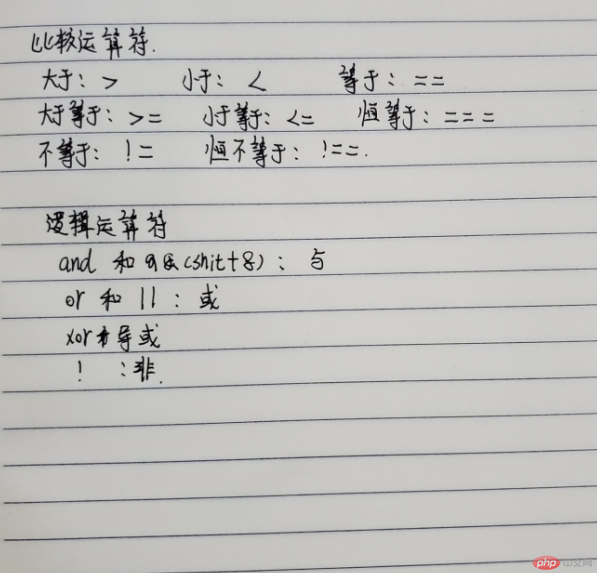 比较运算符.
大于: > 小于: < 等于: ==
大于等于: >= 小于等于: <= 恒等于: ===
不等于: != 恒不等于: !==.
逻辑运算符
and 和 &&(shit+8): 与
or 和 || : 或
xor 异或
! : 非.
php 中文网